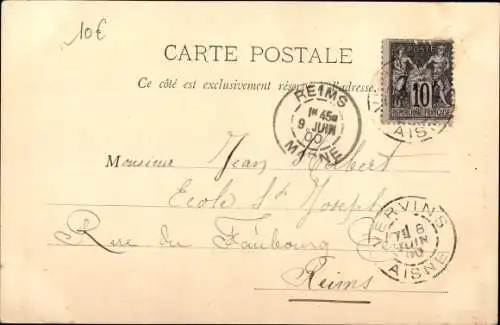 10€
CARTE POSTALE
Ce côté est exclusivement réservé l'adresse
POSTE
10
REPUBLIQUE FRANÇAISE
AISNE
REIMS
1E 45
9 JUIN
00
MARNE
Monsieur Jean
Ecole St Joseph
Rue du Faubourg
Reims
VERVINS
7E 8
JUIN
00
AISNE